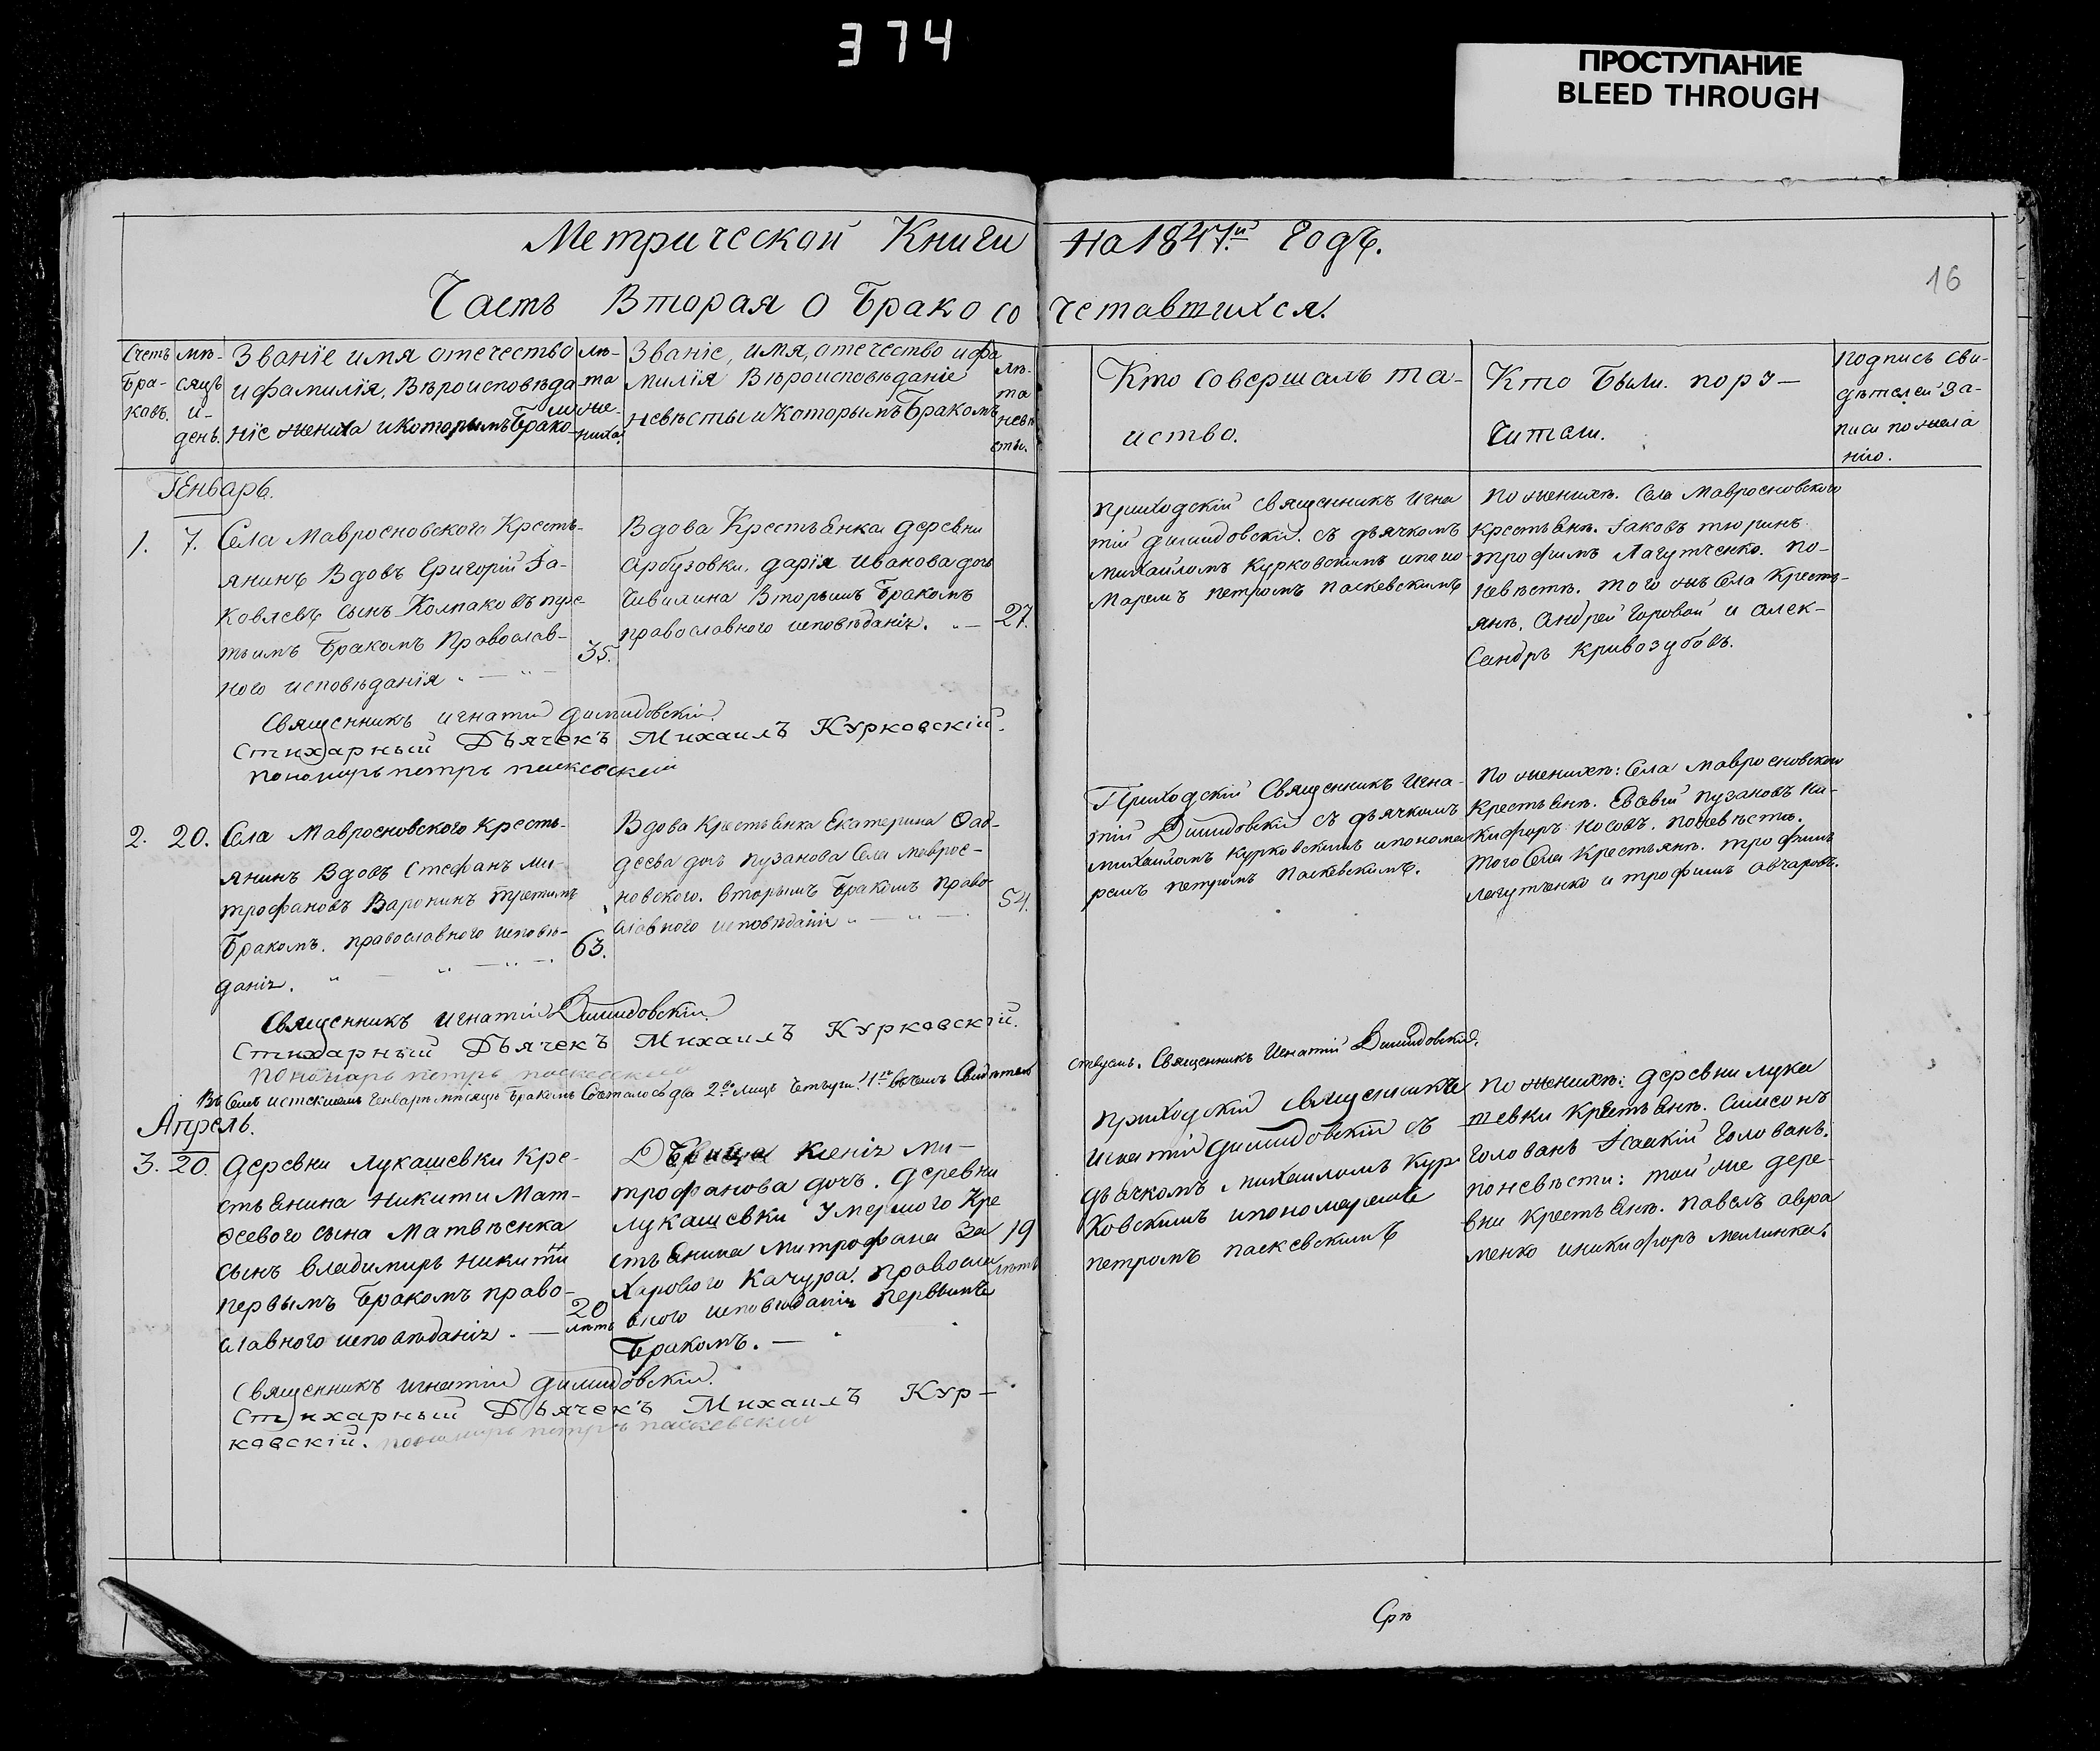 374
ПРОСТУПАНИЕ
BLEED THROUGH
16
Метрической Книги на 1847й годъ.
Часть Вторая о Бракосочетавшихся.
Счетъ
Бра-
ковъ.
мѣ-
сяцъ
и-
день.
Званїе имя отечество
и фамилїя, Вѣроисповѣда
нїе жениха и которымъ Брако
мъ
лѣ-
та
же-
ниха
Званіе, имя, отечество и фа
милїя Вѣроисповѣданіе
невѣсты и которымъ Бракомъ
лѣ-
та
невѣ
сты.
Кто совершалъ та-
инство.
Кто были пору-
чители.
подпись сви-
дѣтелей за-
писи по жела
нію.
Генварь.
1. 7.
Села Мавросновского Кресть-
янинъ Вдовъ Григорій Іа-
ковлевъ сынъ Колпаковъ
тьимъ Бракомъ Православ-
ного исповѣданїя
35.
Вдова Крестьянка деревни
Арбузовки, Дарія Иванова дочь
Вторымъ Бракомъ
православного исповѣданія.
27.
приходскій Священникъ Игна
тій Димидовскій. съ дьячкомъ
Михаиломъ Курковскимъ и поно
маремъ петромъ Паскевскимъ
по женихѣ. Села Мавросновского
Крестьянѣ. Іаковъ тюринъ
трофимъ Лагутченко. по-
невѣстѣ. того жъ Села Кресть-
янѣ. Андрей Горовой и алек-
сандръ Кривозубовъ.
Священникъ игнатій Димидовскій.
Стихарный Дьячекъ Михаилъ Курковскій.
пономарь петръ паскевскій
2. 20.
Села Мавросновского Кресть-
янинъ Вдовъ Стефанъ Ми-
трофановъ Воронинъ третимъ
Бракомъ. православного исповѣ-
данія.
63.
Вдова Крестьянка Екатерина Фад-
деева дочь Пузанова Села Маврос-
новского. вторымъ Бракомъ право-
славного исповѣданія
54.
Приходскій Священникъ Игна-
тій Димидовскій съ дьячкомъ
Михаиломъ Курковскимъ и понома
ремъ петромъ Паскевскимъ.
По женихѣ: Села Мавросновского
Крестьянѣ. Евсевій Пузановъ Ни-
кифоръ Носовъ. по невѣстѣ.
того Села Крестьянѣ. трофимъ
Лагутченко и трофимъ Овчаровъ.
Священникъ игнатій Димидовскій.
Стихарный Дьячекъ Михаилъ Курковскій.
пономарь петръ паскевскій
Въ Семъ истекшемъ Генварѣ мѣсяцѣ Бракомъ Сочеталось два 2ва лицъ четыри! 4ре въ чемъ Свидѣтель
ствуемъ. Священникъ Игнатій Димидовскій.
Апрель.
3. 20.
Деревни Лукашевки Кре-
стьянина Никити Мат-
феевого сына Матвѣенка
сынъ Владимиръ Никитїи
первымъ Бракомъ право-
славного исповѣданія.
20
лѣтъ
Дѣвица Ксенія Ми-
трофанова дочь. Деревни
Лукашевки Умершого Кре
стьянина Митрофана За
харового Качура. Правосла
вного исповѣданія Первымъ
Бракомъ.
19
лѣтъ
приходскій Священникъ
Игнатій Димидовскій съ
дьячкомъ Михаиломъ Кур
ковскимъ и пономаремъ
петромъ паскевскимъ
по женихѣ: Деревни Лука
шевки Крестьянѣ. Симеонъ
Голованъ Голованъ.
по невѣсти: той же дере-
вни Крестьянѣ. Павелъ Авра
менко и никифоръ Малинка.
Священникъ игнатій Димидовскій.
Стихарный Дьячекъ Михаилъ Кур-
ковскій. пономарь петръ паскевскій